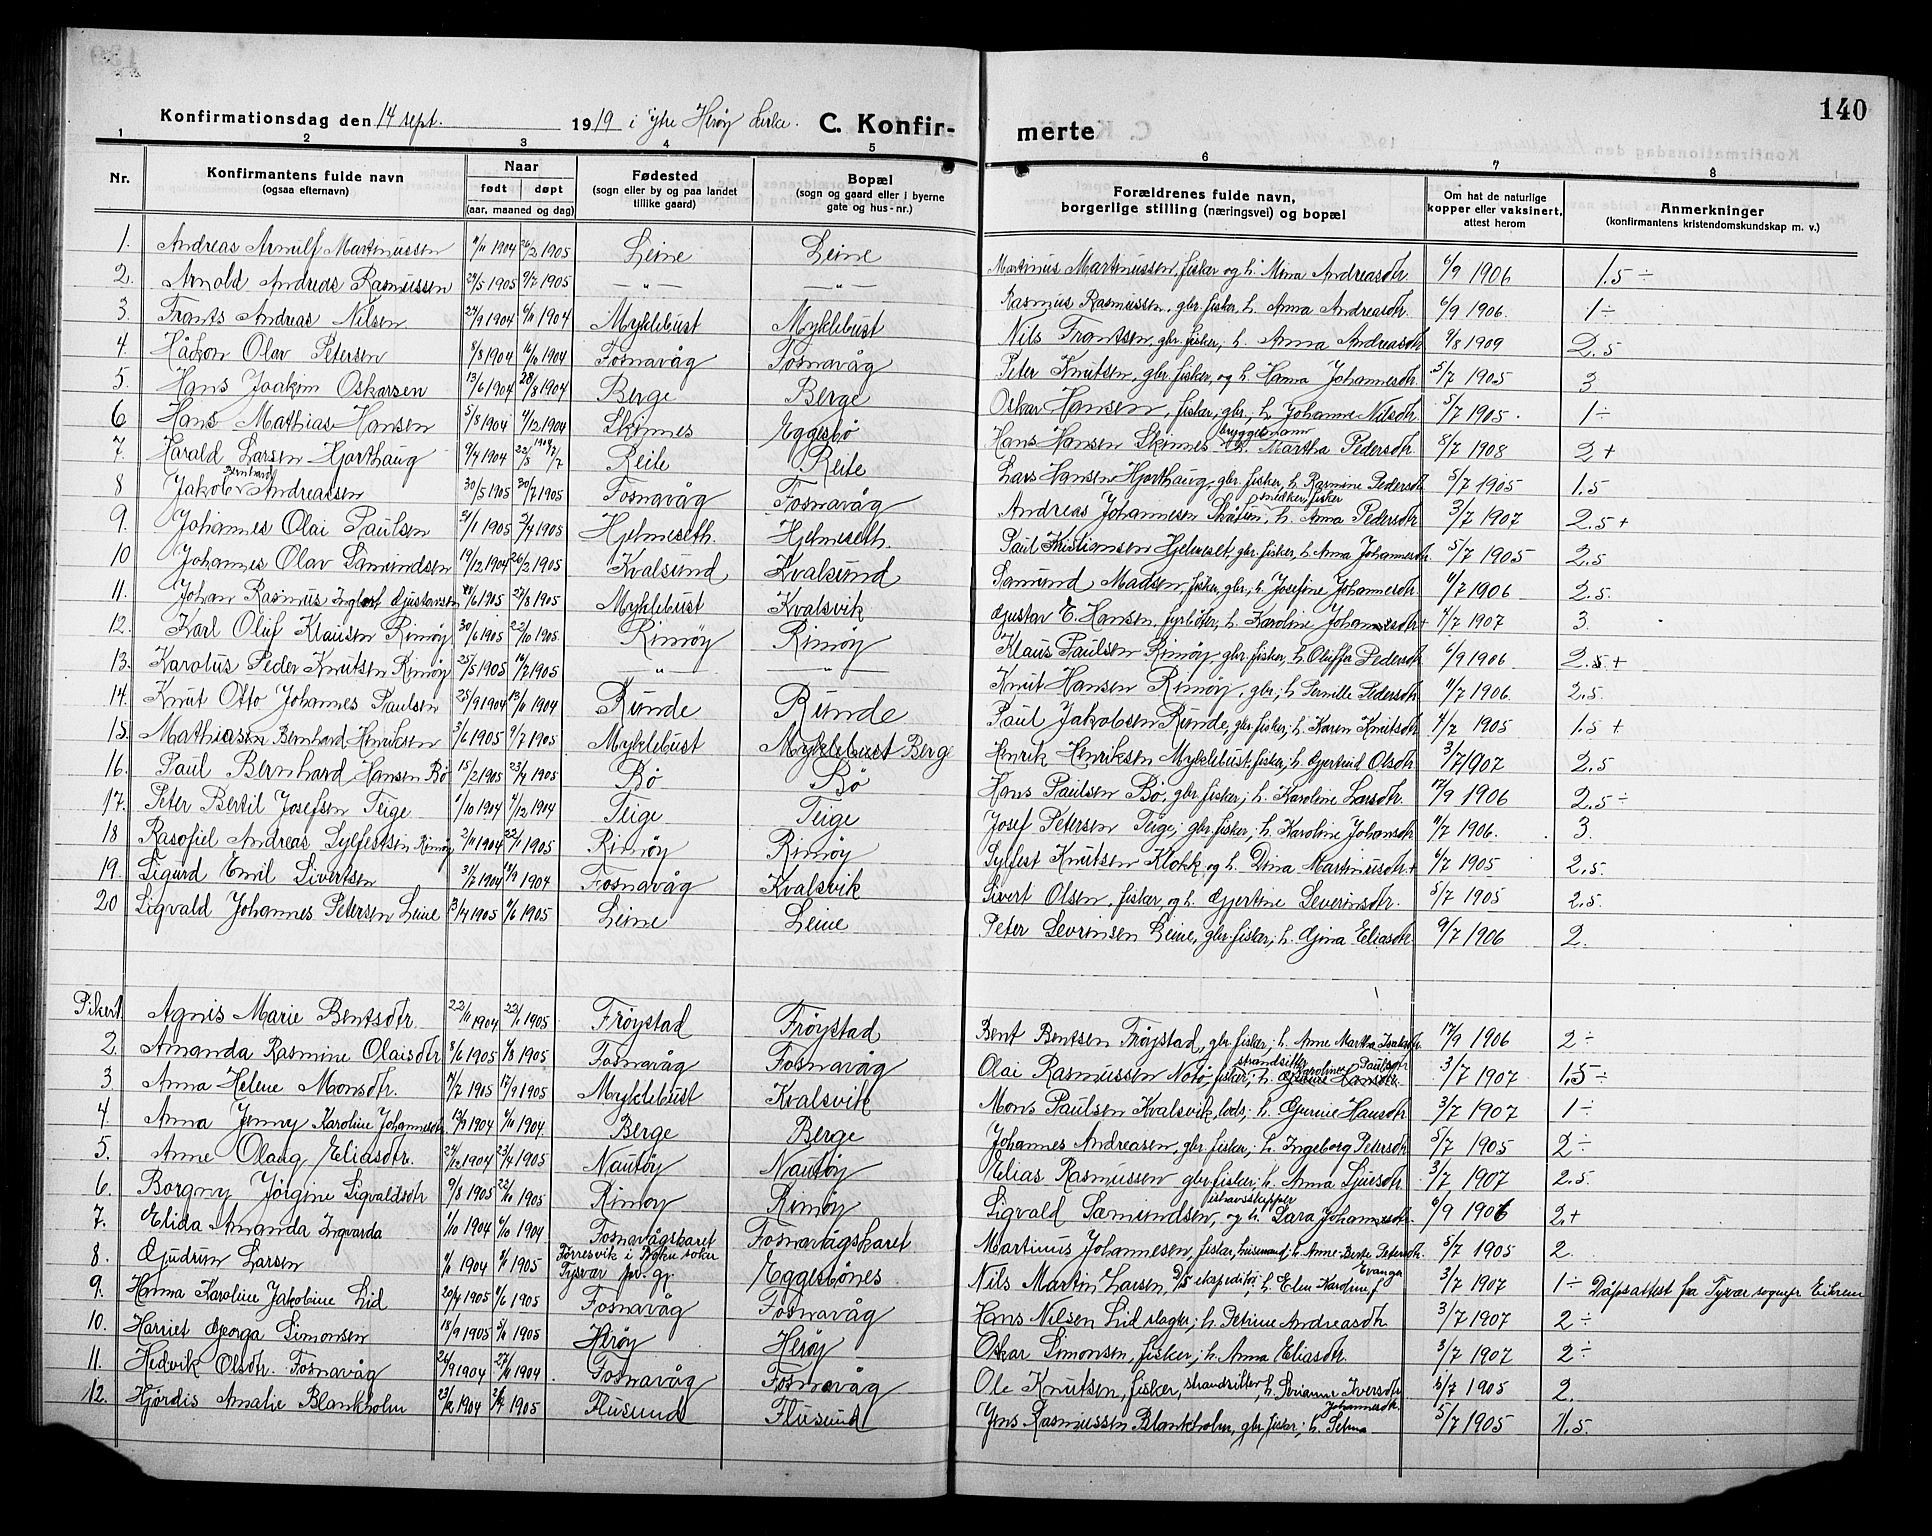 140
Konfirmationsdag den 14 sept. 1919 i ytre Herøy kirke. C. Konfirmerte
1 2 3 4 5 6 7 8
Nr. Konfirmantens fulde navn (ogsaa efternavn) Naar født døpt (aar, maaned og dag) Fødested (sogn eller by og paa landet tillike gaard) Bopæl (sogn og gaard eller i byerne gate og hus-nr.) Forældrenes fulde navn, borgerlige stilling (næringsvei) og bopæl Om hat de naturlige kopper eller vaksinert, attest herom Anmerkninger (konfirmantens kristendomskundskap m. v.)
1. Andreas Arnulf Martinussen 11/11 1904 26/2 1905 Leine Leine Martinus Martinussen, fisker og h. Mina Andreasdtr. 6/9 1906 1.5 ÷
2. Arnold Andreas Rasmussen 29/5 1905 9/7 1905 —"— —"— Rasmus Rasmussen, gbr. fisker, h. Anna Andreasdtr. 6/9 1906. 1 ÷
3. Frants Andreas Nilsen 24/9 1904 6/11 1904 Myklebust Myklebust Nils Frantsen, gbr. fisker, h. Anna Andreasdtr 9/8 1909 2.5
4. Håkon Olav Petersen 8/8 1904 16/10 1904 Fosnavåg Fosnavåg Peter Knutsen, gbr. fisker, og h. Hanna Johannesdtr. 5/7 1905 3
5. Hans Joakim Oskarsen 13/6 1904 28/8 1904 Berge Berge Oskar Hansen, fisker, gbr., h. Johanne Nilsdtr. 5/7 1905. 1 ÷
6 Hans Mathias Hansen 5/8 1904 4/12 1904 Skinnes Eggesbø Hans Hansen Skinnes bryggemann h. Martha Pedersdtr. 8/7 1908 2 +
7. Harald Larsen Hjorthaug 9/7 1904 Reite Reite Lars Hansen Hjorthaug, gbr. fisker, h. Rasmine Pedersdtr 5/7 1905 1.5
8 Jakob Bernhard Andreassen 30/5 1905 30/7 1905 Fosnavåg Fosnavåg Andreas Johannesen snedker, fisker, h. Anna Pedersdtr 3/7 1907 2.5 +
9. Johannes Olai Paulsen 2/1 1905 2/4 1905 Hjelmeseth. Hjelmeseth. Paul Kristiansen Hjelmeset, gbr. fisker, h. Anna Johannesdtr. 5/7 1905 2.5
10 Johannes Olav Samundsen 19/12 1904 26/2 1905 Kvalsund Kvalsund Samund Madsen, fisker, gbr., h. Josefine Johannesdtr. 6/7 1906 2.5.
11. Johan Rasmus Inglert Gustavsen 1905 27/8 1905 Myklebust Kvalsvik Gustav E. Hansen, fyrbøter, h. Karoline Johannesdtr + 4/7 1907 3.
12. Karl Oluf Klausen Rimøy 30/6 1905 22/10 1905. Rimøy Rimøy Klaus Paulsen Rimøy, gbr. fisker, h. Oluffa Pedersdtr 6/9 1906 2.5 +
13. Karolus Peder Knutsen Rimøy 25/5 1905 16/7 1905 " —"— Knut Hansen Rimøy, gbr., h. Pernille Pedersdtr. 11/7 1906. 2.5
14. Knut Otto Johannes Paulsen 25/9 1904 13/11 1904 Runde Runde Paul Jakobsen Runde, gbr. fisker, h. Karen Knutsdtr 4/7 1905 1.5 +
15. Mathiasen Bernhard Henriksen 3/6 1905 9/7 1905. Myklebust Myklebust Berg Henrik Henriksen Myklebust, fisker, h. Gjertrud Olsdtr. 3/7 1907 2.5
16. Paul Bernhard Hansen Bø 15/2 1905 23/4 1905 Bø Bø Hans Paulsen Bø, gbr. fisker, h. Karoline Larsdtr. 17/9 1906 2.5 ÷
17. Peter Bertil Josefsen Teige 1/10 1904 4/12 1904 Teige Teige Josef Petersen Teige, gbr. fisker, h. Karoline Johansdtr. 11/7 1906. 3.
18 Rasofiel Andreas Sylfestsen Rimøy 2/11 1904 22/1 1905 Rimøy Rimøy Sylfest Knutsen Klokk, og h. Dina Martinusdtr + 6/7 1905 2.5.
19. Sigurd Emil Sivertsen 31/7 1904 18/9 1904 Fosnavåg Kvalsvik Sivert Olsen, fisker, og h. Gjertine Severinsdtr. 5/7 1905 2.5.
20 Sigvald Johannes Petersen Leine 13/4 1905 11/6 1905 Leine Leine Peter Sevrinsen Leine, gbr. fisker, h. Gina Eliasdtr. 9/7 1906 2.
Piker 1. Agnis Marie Bentsdtr 22/11 1904 22/1 1905 Frøystad Frøystad Bent Bentsen Frøystad, gbr. fisker, h. Anne Martha Isaksdtr. 17/9 1906 2 ÷
2. Amanda Rasmine Olaisdtr 8/6 1905 6/8 1905 Fosnavåg Fosnavåg Olai Rasmussen Notø, fisker, strandsitter h. Karoline Paulsdtr 3/7 1907 1.5 ÷
3. Anna Helene Monsdtr. 7/7 1905 17/9 1905 Myklebust Kvalsvik Mons Paulsen Kvalsvik, lods, h. Gurine Hansdtr 3/7 1907 1 ÷
4. Anna Jenny Karoline Johannesdtr. 13/9 1904 6/11 1904. Berge Berge Johannes Andreasen, gbr. fisker, h. Ingeborg Petersdtr 5/7 1905 2 ÷
5. Anne Olaug Eliasdtr. 24/12 1904 23/4 1905 Nautøy Nautøy Elias Rasmussen gbr. fisker, h. Anna Sjursdtr. 3/7 1907 2.5.
6. Borgny Jørgine Sigvaldsdtr 9/8 1905 22/10 1905 Rimøy Rimøy Sigvald Sæmundsen, ishavsskipper og h. Sara Johannesdtr. 6/9 1906 2.+
7. Elida Amanda Ingvarda 1/10 1904 6/11 1904 Fosnavågskaret Fosnavågskaret Martinus Johannesen, fisker, husmand, h. Anne-Berte Petersdtr. 5/7 1905 2.
8. Gudrun Larsen 6/11 1904 8/1 1905 Førresvik i Bokn sokn Tysvær pr. gj. Eggesbønes Nils Martin Larsen, D/S ekspeditør, h. Elen Karoline f Evanger 3/7 1907 1 ÷ Dåpsattest fra Tysvær sognepr. Eikrem
9. Hanna Karoline Jakobine Lid 20/4 1905 4/6 1905 Fosnavåg Fosnavåg Hans Nilsen Lid slagter, h. Petrine Andreasdtr 3/7 1907 2 ÷
10. Harriet Georga Simonsen 18/9 1905 5/11 1905 Herøy Herøy Oskar Simonsen, fisker, h. Anna Eliasdtr. 3/7 1907 2 ÷
11. Hedvik Olsdtr. Fosnavåg 26/9 1904 27/11 1904 Fosnavåg Fosnavåg Ole Knutsen, fisker, strandsitter, h. Sevianne Iversdtr 5/7 1905 2.
12. Hjørdis Amalie Blankholm 23/12 1904 1905 Flusund Flusund Jens Rasmussen Blankholm, gbr. fisker, h. Selma Johannesdtr. 5/7 1905 1.5.